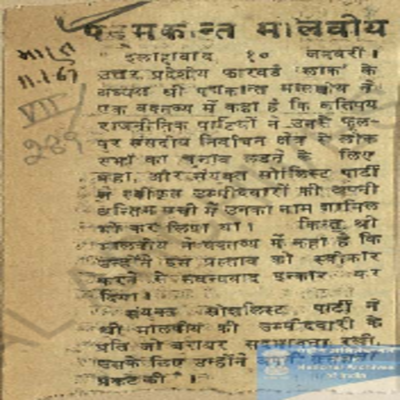 पद्मकान्त मालवीय
भारत
11.1.67
VII
289
इलाहाबाद १० जनवरी ।
उत्तर प्रदेशीय फारवर्ड ब्लाक के
अध्यक्ष श्री पद्मकान्त मालवीय ने
एक वक्तव्य में कहा है कि कतिपय
राजनीतिक पार्टियों ने उनसे फूल-
पुर संसदीय निर्वाचन क्षेत्र से लोक
सभा का चुनाव लड़ने के लिए
कहा, और संयुक्त सोशलिस्ट पार्टी
ने स्वीकृत उम्मीदवारों की अपनी
अन्तिम सूची में उनका नाम शामिल
भी कर लिया था। किन्तु श्री
मालवीय ने वक्तव्य में कहा है कि
उन्होंने इस प्रस्ताव को स्वीकार
करने से सधन्यवाद इन्कार कर
दिया।
संयुक्त सोशलिस्ट पार्टी ने
श्री मालवीय की उम्मीदवारी के
प्रति जो बराबर सद्भावना रखी,
उसके लिए उन्होंने अपनी
प्रकट की ।